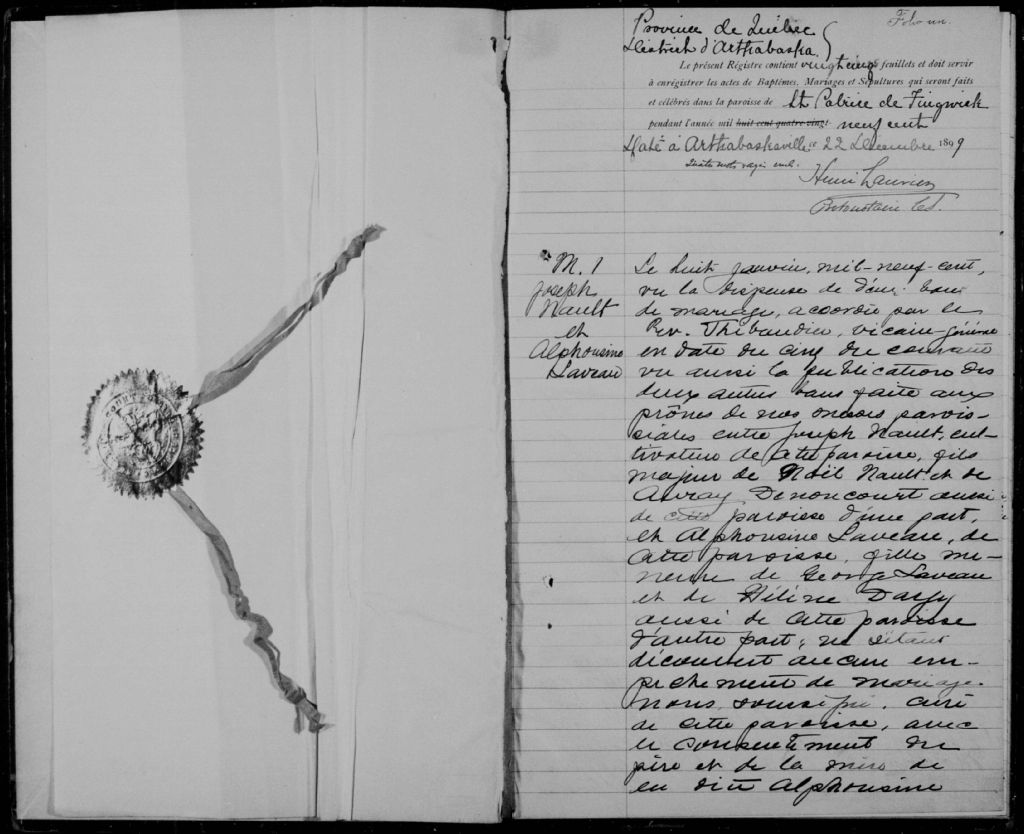 Folio un.
Province de Québec
District d'Arthabaska.
Le présent Régistre contient vingt cinq feuillets et doit servir
à enrégistrer les actes de Baptêmes, Mariages et Sépultures qui seront faits
et célébrés dans la paroisse de St Patrice de Tingwick
pendant l'année mil huit cent quatre-vingt neuf cent
Daté à Arthabaskaville ce 22 Décembre 1899
mots rayés nuls.
Henri Laurier
Protonotaire C.S.
M. 1
Joseph
Nault
et
Alphonsine
Laveau
Le huit janvier, mil-neuf-cent,
vu la dispense de d'un ban
de mariage, accordée par le
Rév. Thibaudier, vicaire-général
en date du cinq du courant
vu aussi la publication des
deux autres bans faite aux
prônes de nos messes parois-
siales entre Joseph Nault, cul-
tivateur de cette paroisse, fils
majeur de Noël Nault et de
Denoncourt aussi
de cette paroisse d'une part,
et Alphonsine Laveau, de
cette paroisse, fille mi-
neure de George Laveau
et de Hélène Darcy
aussi de cette paroisse
d'autre part; ne s'étant
découvert aucun em-
pêchement de mariage
nous, soussigné, curé
de cette paroisse, avec
le consentement du
père et de la mère de
la dite Alphonsine